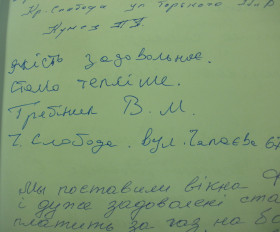 Кр. Слобода ул. Горького
якість задовольное.
Стало тепліше.
Гребінник В. М.
Ч. Слобода. вул. Чапаєва 67
Мы поставили вікна
і дуже задоволені ста
платить за газ на бо